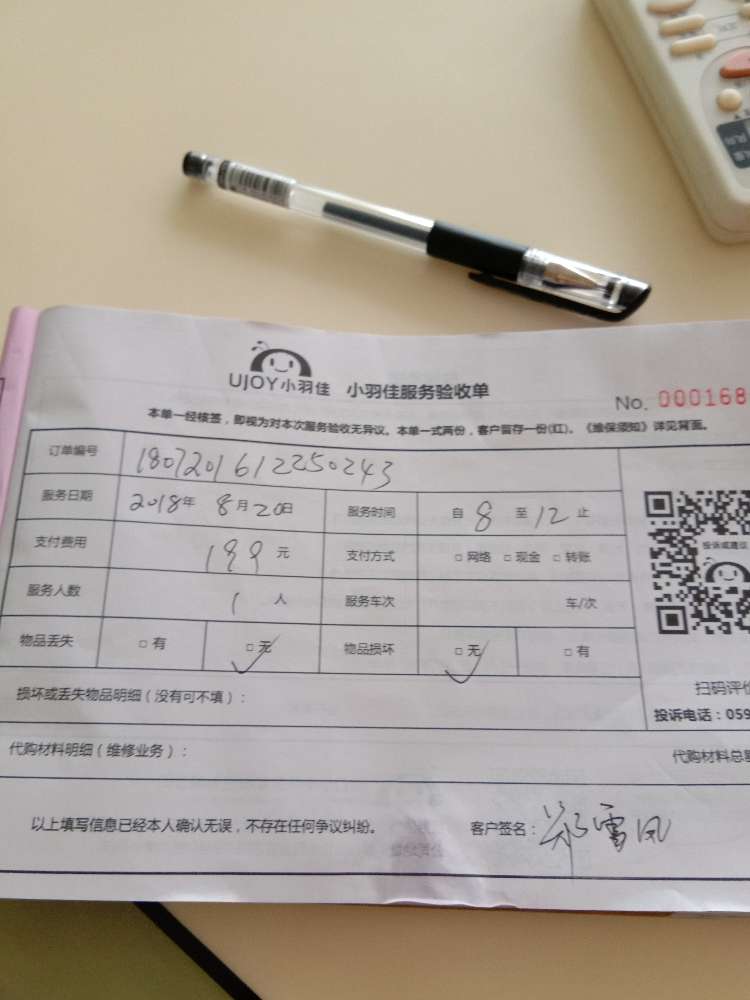 UJOY小羽佳 小羽佳服务验收单
No. 000168
本单一经核签，即视为对本次服务验收无异议。本单一式两份，客户留存一份(红)。《维保须知》详见背面。
订单编号 1807201612250243
服务日期 2018年 8月20日 服务时间 自 8 至 12 止
支付费用 199 元 支付方式 □ 网络 □ 现金 □ 转账
投诉或建议
服务人数 1 人 服务车次 车/次
物品丢失 □ 有 □ 无 物品损坏 □ 无 □ 有
扫码评价
损坏或丢失物品明细（没有可不填）：
投诉电话：059
代购材料明细（维修业务）：
代购材料总
以上填写信息已经本人确认无误，不存在任何争议纠纷。 客户签名：郑雪凤